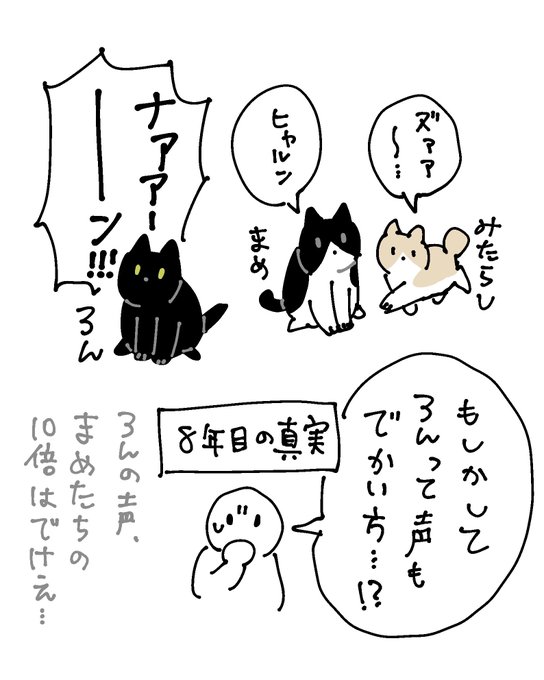 ズァァ
〜…
みたらし
ヒャルン
まめ
ナァァー
ーーン!!!
ろん
もしかして
ろんって声も
でかい方…!?
8年目の真実
ろんの声、
まめたちの
10倍はでけえ…